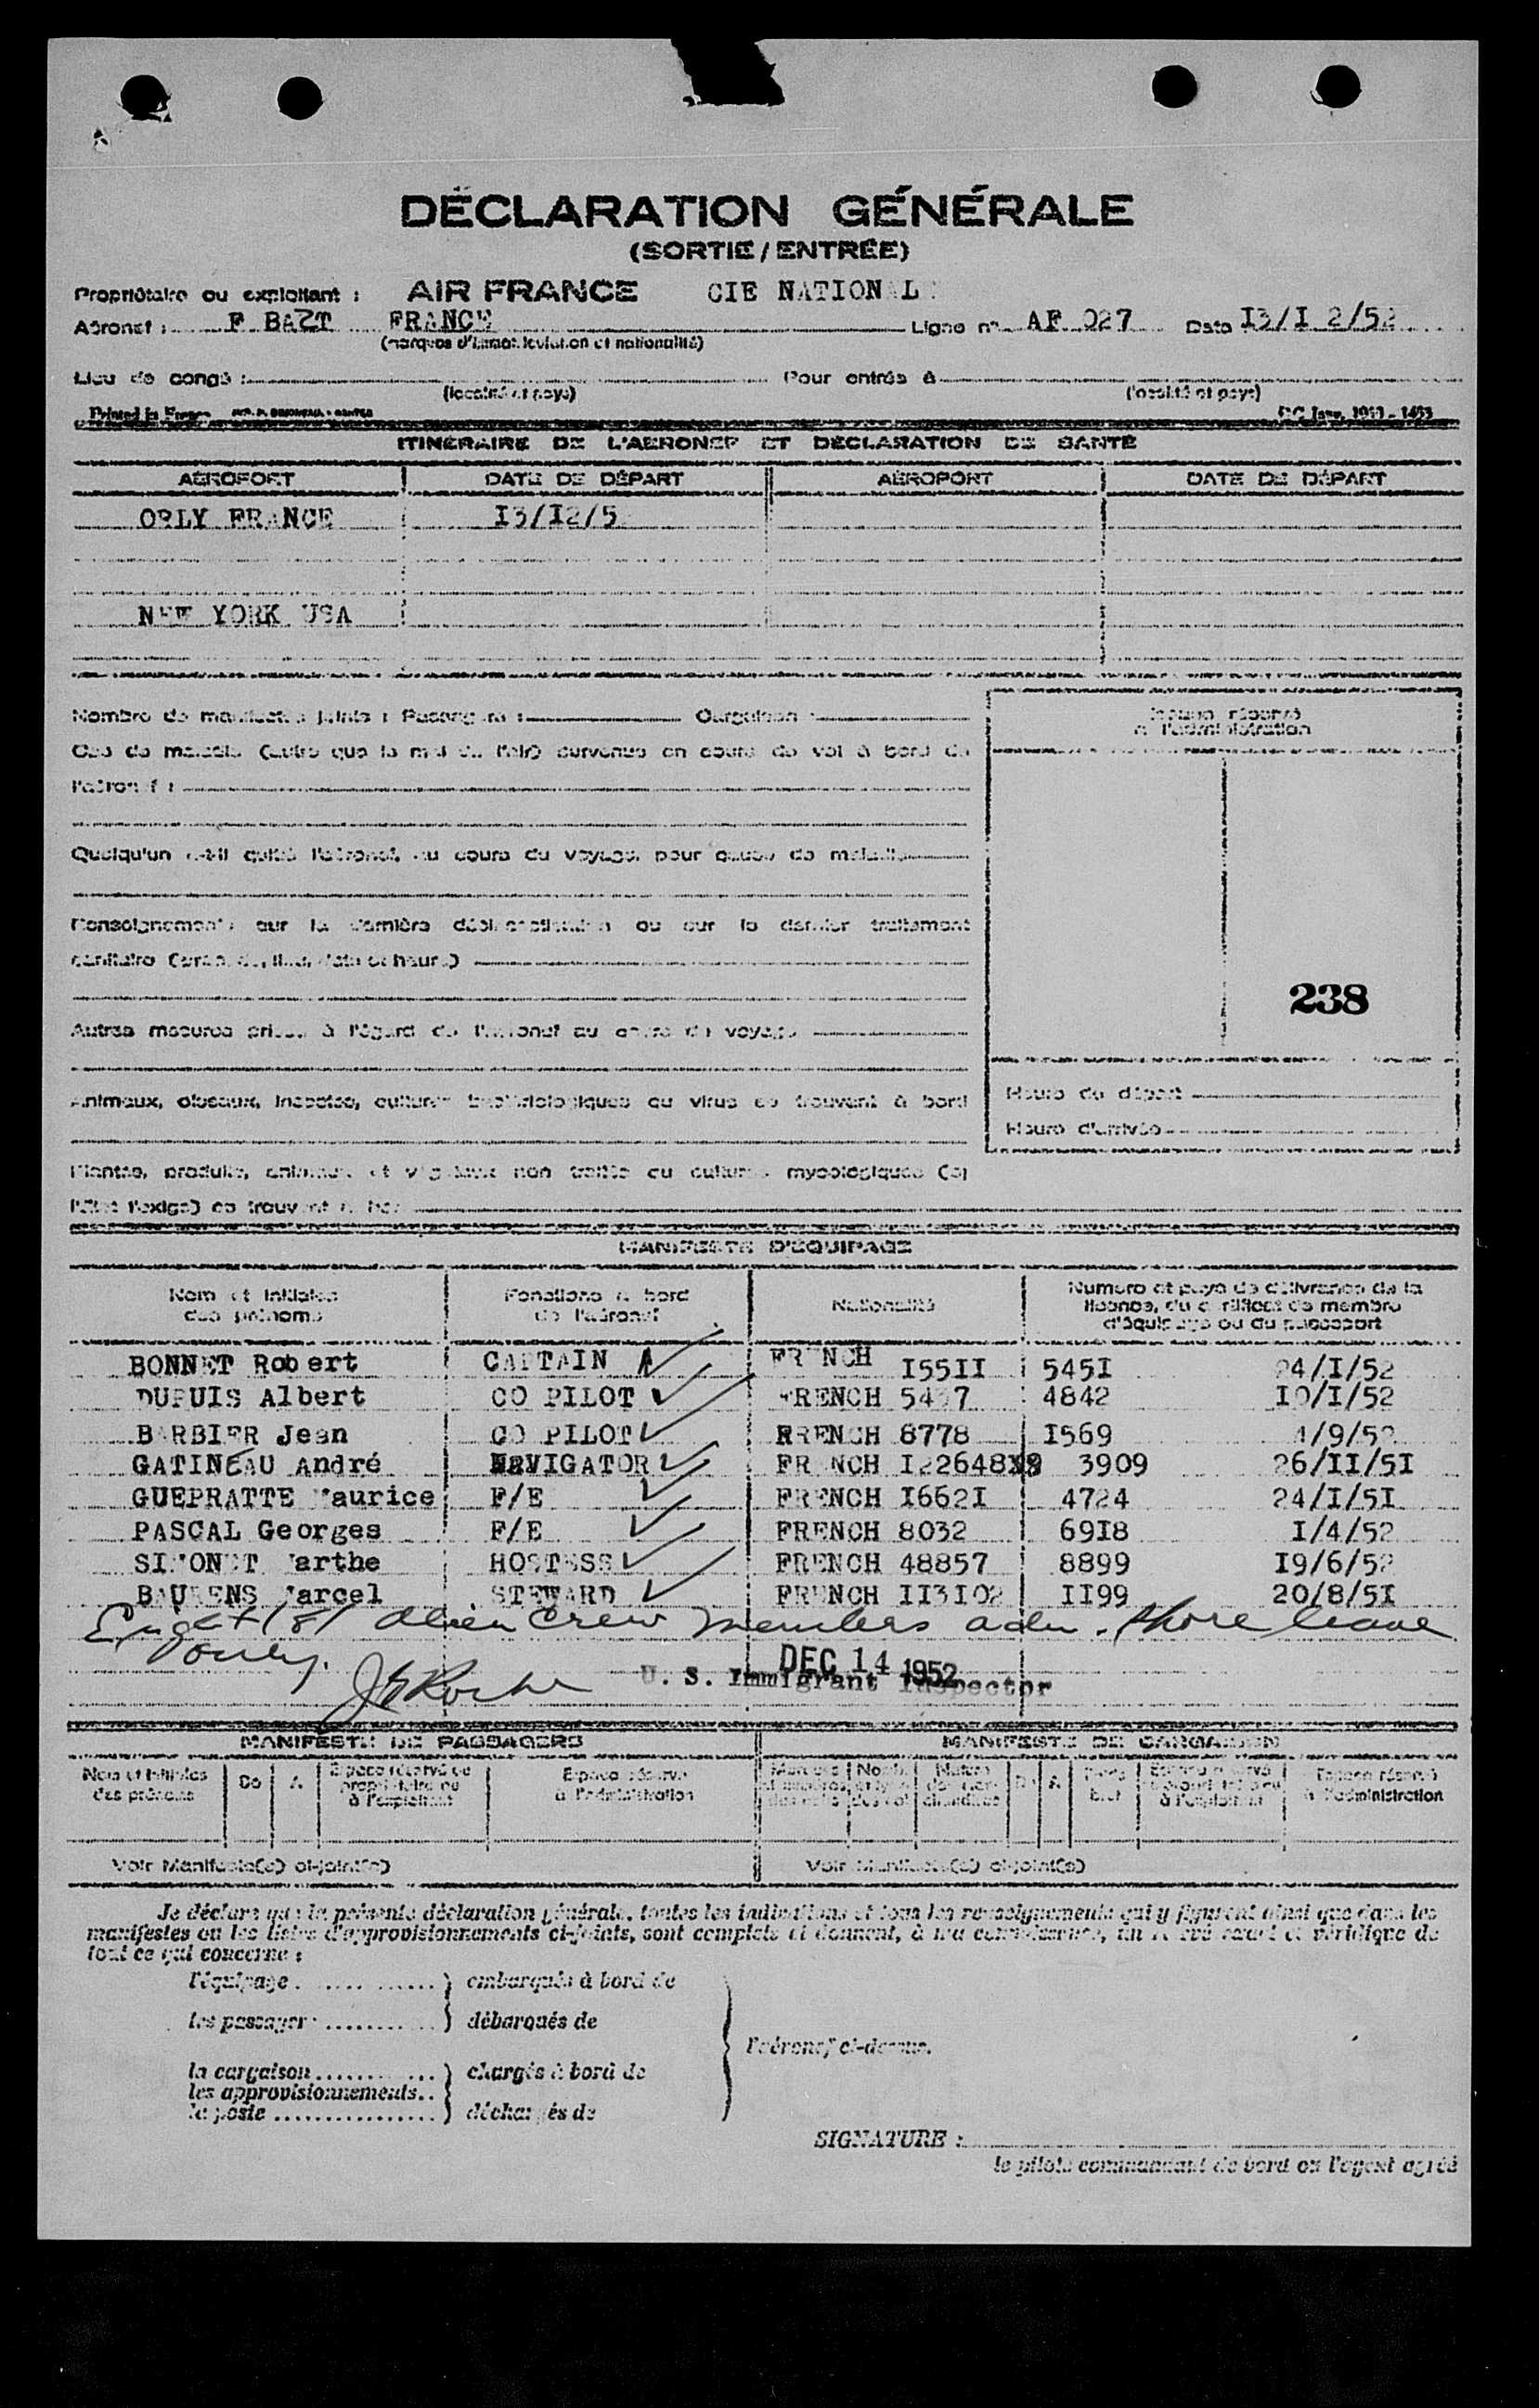 DÉCLARATION GÉNÉRALE
(SORTIE / ENTRÉE)
Propriétaire ou exploitant : AIR FRANCE CIE NATIONAL
Aéronef : F BAZT FRANCE Ligne n° AF 027 Date I3/I 2/52
(marques d'immatriculation et nationalité)
Lieu de congé : Pour entrée à
(localité et pays) (localité et pays)
Printed in France
ITINÉRAIRE DE L'AÉRONEF ET DÉCLARATION DE SANTÉ
AÉROPORT DATE DE DÉPART AÉROPORT DATE DE DÉPART
ORLY FRANCE I3/I2/5
NEW YORK USA
Nombre de manifestes joints : Passagers : Cargaison :
Cas de maladie (autre que le mal de l'air) survenus en cours de vol à bord de
l'aéronef :
Quelqu'un a-t-il quitté l'aéronef, au cours du voyage, pour cause de maladie
Renseignements sur la dernière désinsectisation ou sur le dernier traitement
sanitaire
Autres mesures prises à l'égard de l'aéronef au cours du voyage
Animaux, oiseaux, insectes, cultures bactériologiques ou virus se trouvant à bord
Plantes, produits, animaux et végétaux non traités ou cultures mycologiques (si
l'État l'exige) se trouvant à bord
à l'administration
238
Heure du départ
Heure d'arrivée
MANIFESTE D'ÉQUIPAGE
Nom et initiales des prénoms Fonctions à bord de l'aéronef Nationalité Numéro et pays de délivrance de la licence, du certificat de membre d'équipage ou du passeport
BONNET Robert CAPTAIN FRENCH I55II 545I 24/I/52
DUPUIS Albert CO PILOT FRENCH 4842 I0/I/52
BARBIER Jean CO PILOT RRENCH 8778 I569 /9/52
GATINEAU André NAVIGATOR FRENCH I22648 3909 26/II/5I
GUEPRATTE Maurice F/E FRENCH I662I 4724 24/I/5I
PASCAL Georges F/E FRENCH 8032 69I8 I/4/52
SIMONET Marthe HOSTESS FRENCH 48857 8899 I9/6/52
BAURENS Marcel STEWARD FRENCH II3I02 II99 20/8/5I
Eight (8) alien crew members adm. shore leave
only.
DEC 14 1952
U. S. Immigrant Inspector
MANIFESTE DE PASSAGERS MANIFESTE DE CARGAISON
Nom et initiales des prénoms De A Espace réservé au propriétaire ou à l'exploitant Espace réservé à l'administration
Espace réservé à l'administration
Voir Manifeste(s) ci-joint(s) Voir Manifeste(s) ci-joint(s)
Je déclare que la présente déclaration générale, toutes les indications et tous les renseignements qui y figurent ainsi que dans les
manifestes ou les listes d'approvisionnements ci-joints, sont complets et donnent, à ma connaissance, un relevé exact et véridique de
tout ce qui concerne :
l'équipage } embarqués à bord de
les passagers } débarqués de
l'aéronef ci-dessus.
la cargaison } chargés à bord de
les approvisionnements
la poste } déchargés de
SIGNATURE :
le pilote commandant de bord ou l'agent agréé